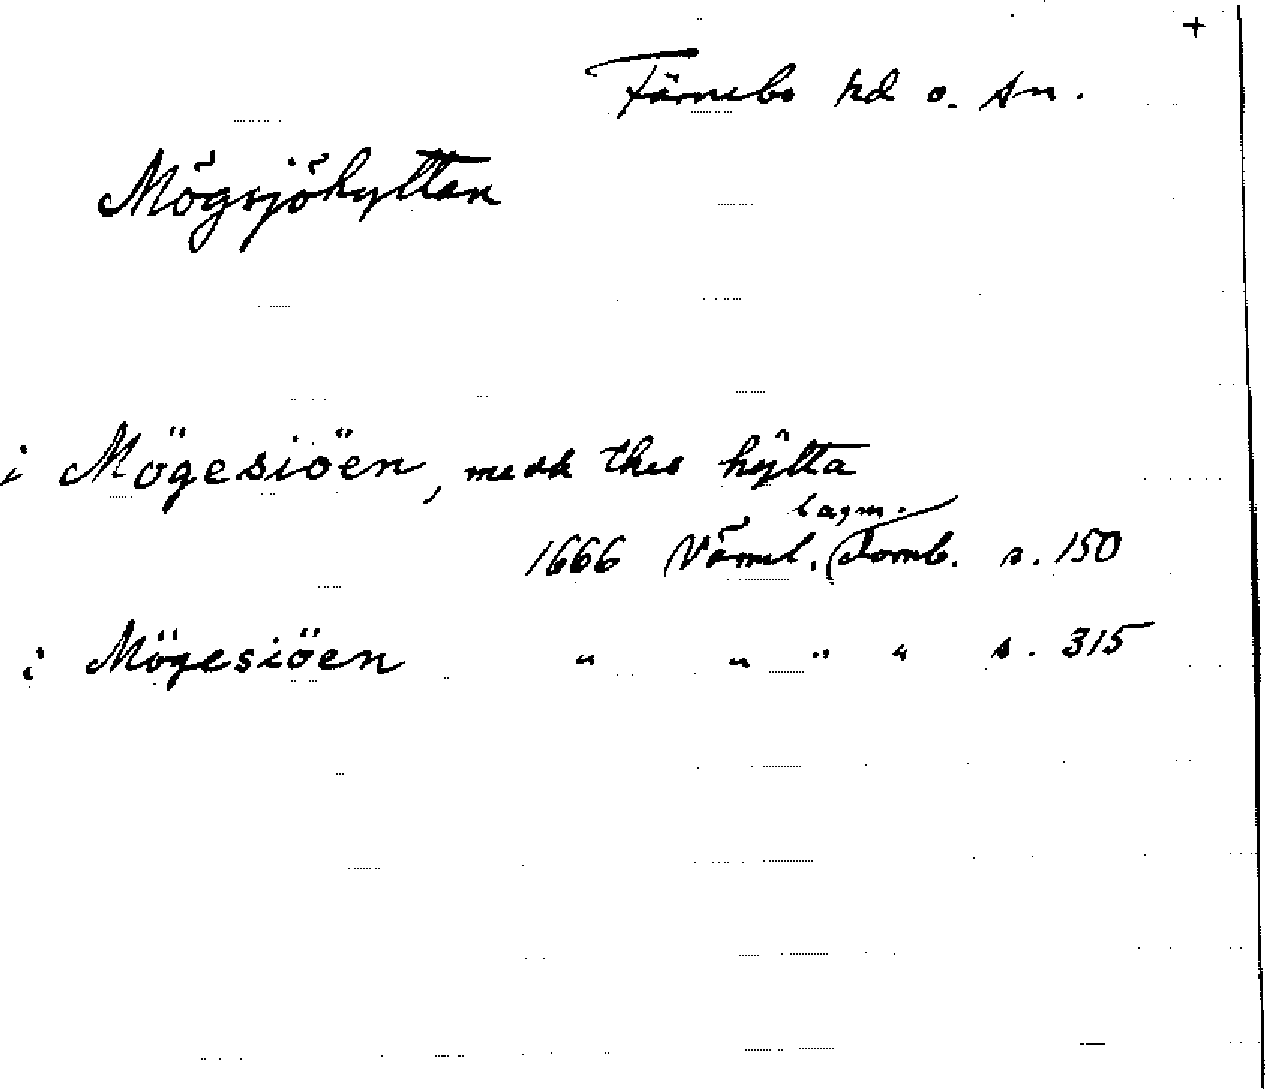 +
Färnebo hd o. sn.
Mögsjöhyttan
i Mögesiöen, medh thes hÿtta
lagm.
1666 Värml. Domb. s. 150
i Mögesiöen " " " " s. 315